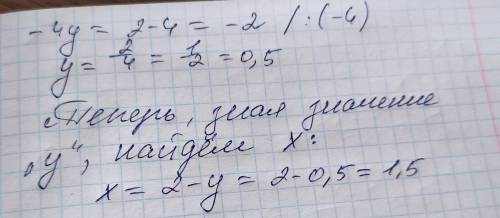 -4y = 2-4 = -2 /:(-4)
y = 2/4 = 1/2 = 0,5
Теперь, зная значение
„y“, найдём x:
x = 2-y = 2-0,5 = 1,5